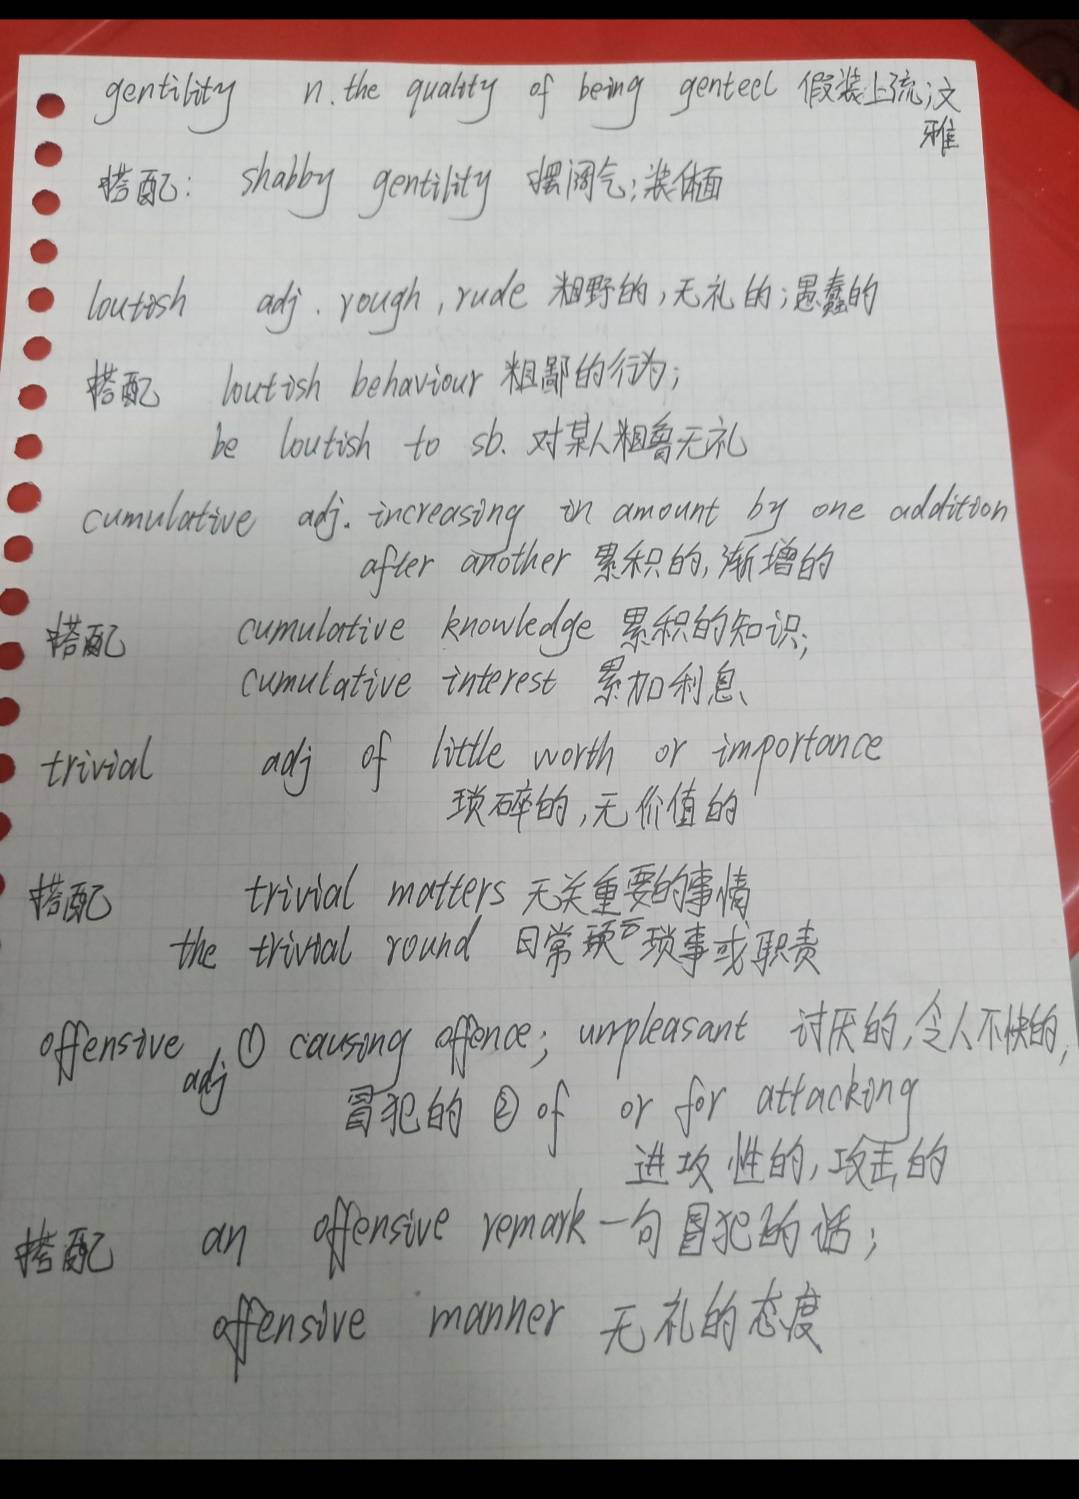 gentility n. the quality of being genteel 假装上流;文
雅
搭配: shabby gentility 摆阔气;装体面
loutish adj. rough, rude 粗野的,无礼的;愚蠢的
搭配 loutish behaviour 粗鄙的行为;
be loutish to sb. 对某人粗鲁无礼
cumulative adj. increasing in amount by one addition
after another 累积的,渐增的
搭配 cumulative knowledge 累积的知识;
cumulative interest 累加利息
trivial adj of little worth or importance
琐碎的,无价值的
搭配 trivial matters 无关重要的事情
the trivial round 日常琐事或职责
offensive adj ① causing offence; unpleasant 讨厌的,令人不快的,
冒犯的 ② of or for attacking
进攻性的,攻击的
搭配 an offensive remark 一句冒犯的话;
offensive manner 无礼的态度